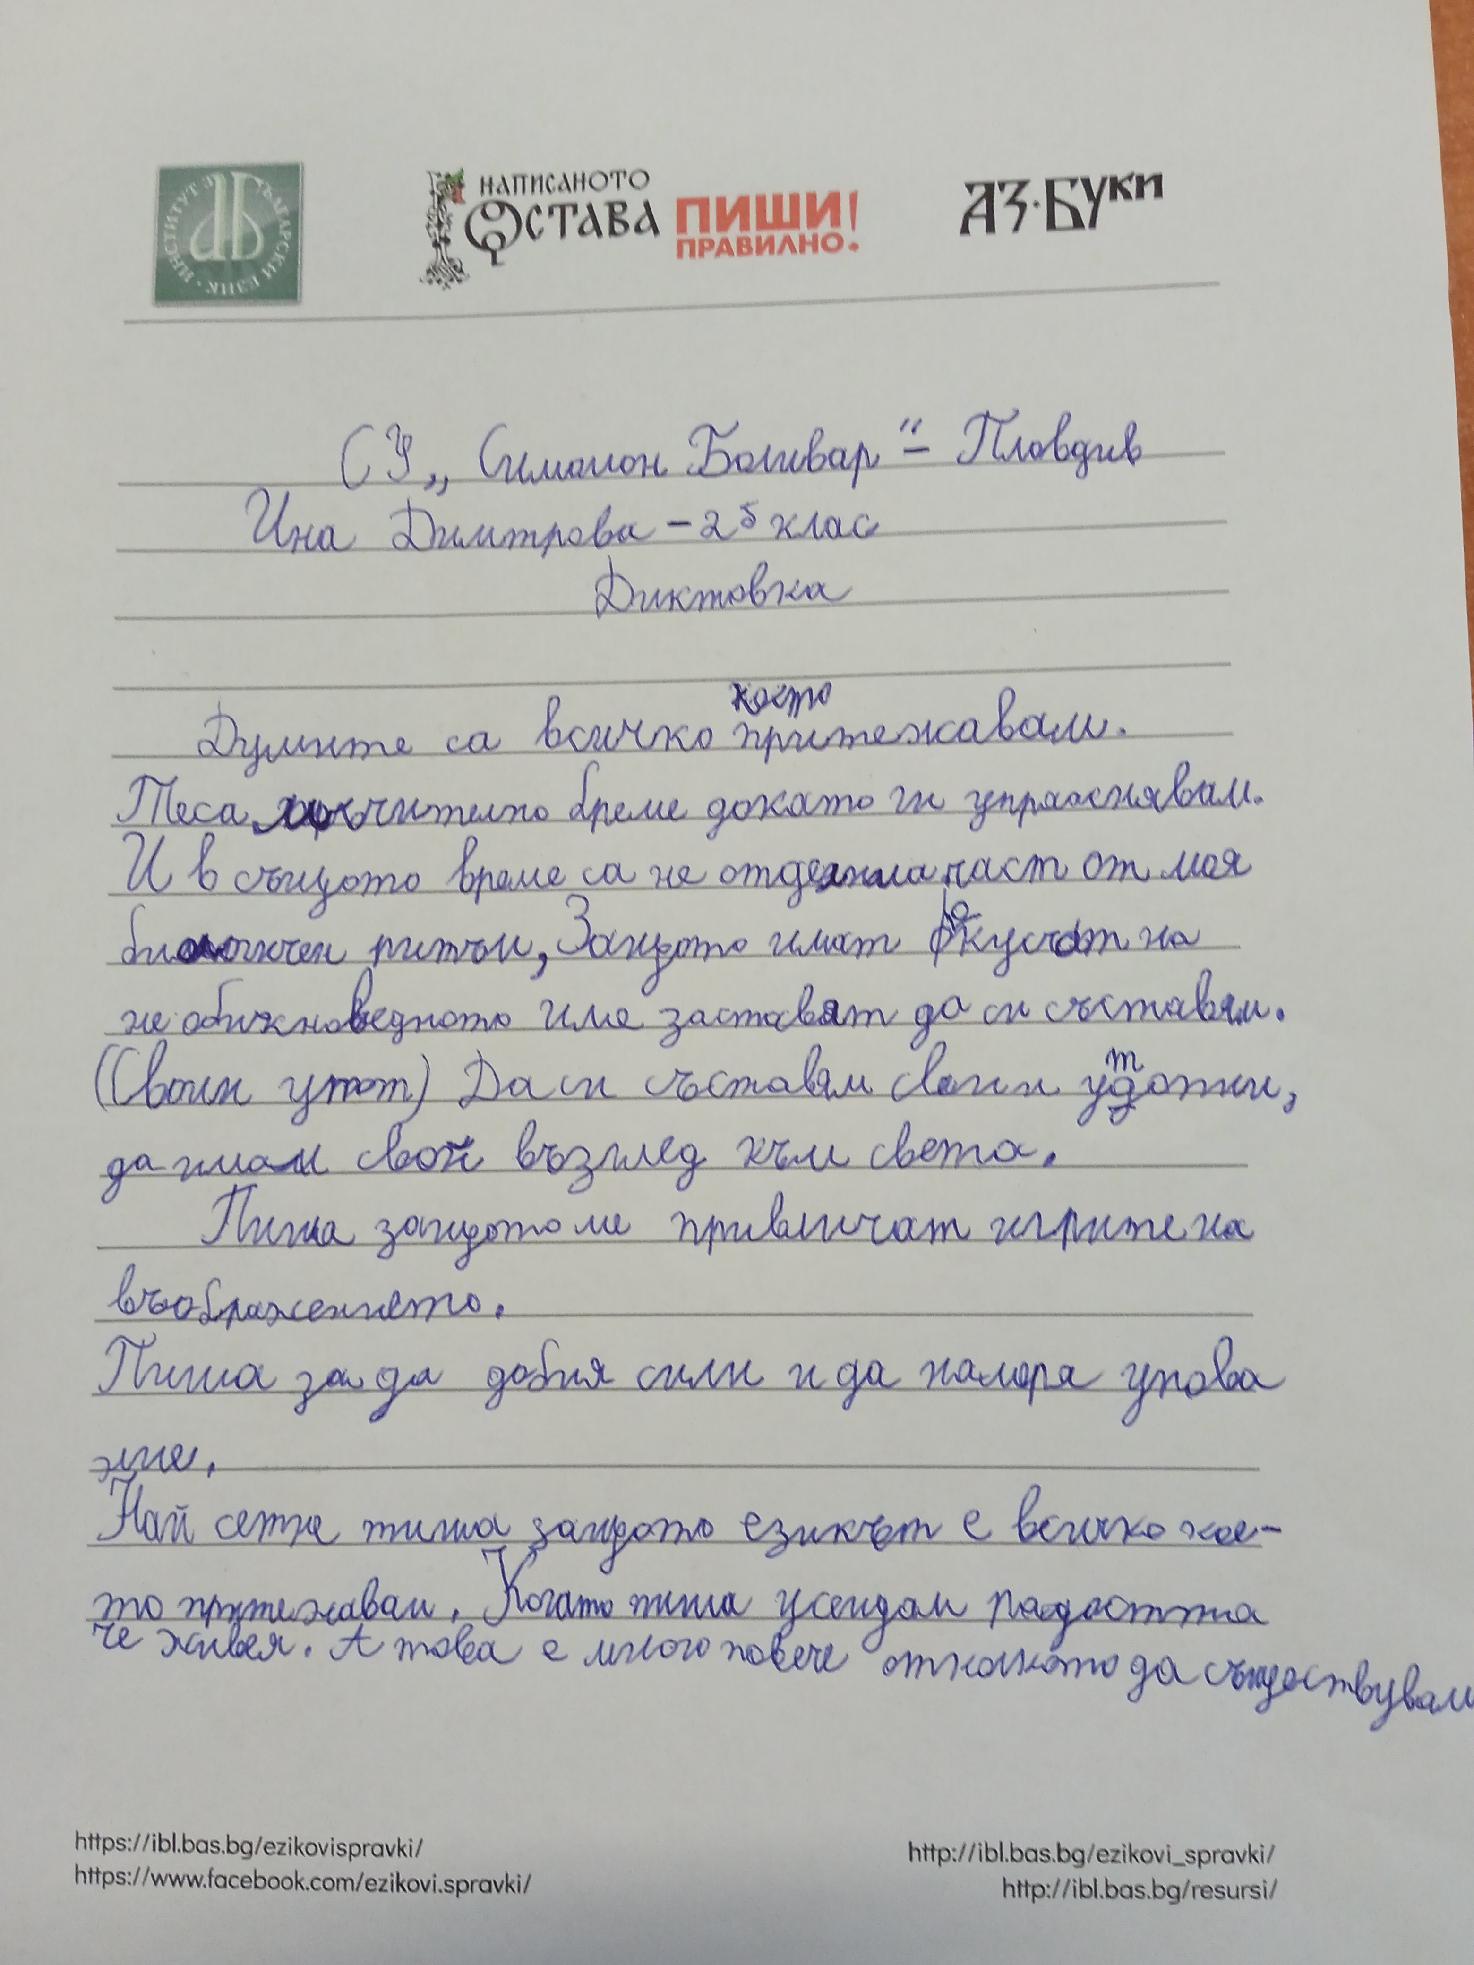 ИНСТИТУТ ЗА БЪЛГАРСКИ ЕЗИК
НАПИСАНОТО ОСТАВА ПИШИ ПРАВИЛНО!
АЗ·БУКИ
СУ „Симолон Боливар“ – Пловдив
Ина Димитрова – 2 б клас
Диктовка
което
Думите са всичко притежавам.
Теса мъчително бреме докато ги упражнявам.
И в същото време са не отделна част от моя
биологичен ритъм, Защото имат вкусът на
не обикноведното име заставят да си съставям.
(Своии утот) Да си съставям своии утопии,
да имам свой възглед към света.
Пиша защото ме привличат игрите на
въображението.
Пиша за да добия сили и да намеря упова
ние.
Най сетне пиша защото езикът е всичко кое-
то притежавам. Когато пиша усещам радостта
че живея. А това е много повече отколкото да съществувам
https://ibl.bas.bg/ezikovispravki/
https://www.facebook.com/ezikovi.spravki/
http://ibl.bas.bg/ezikovi_spravki/
http://ibl.bas.bg/resursi/